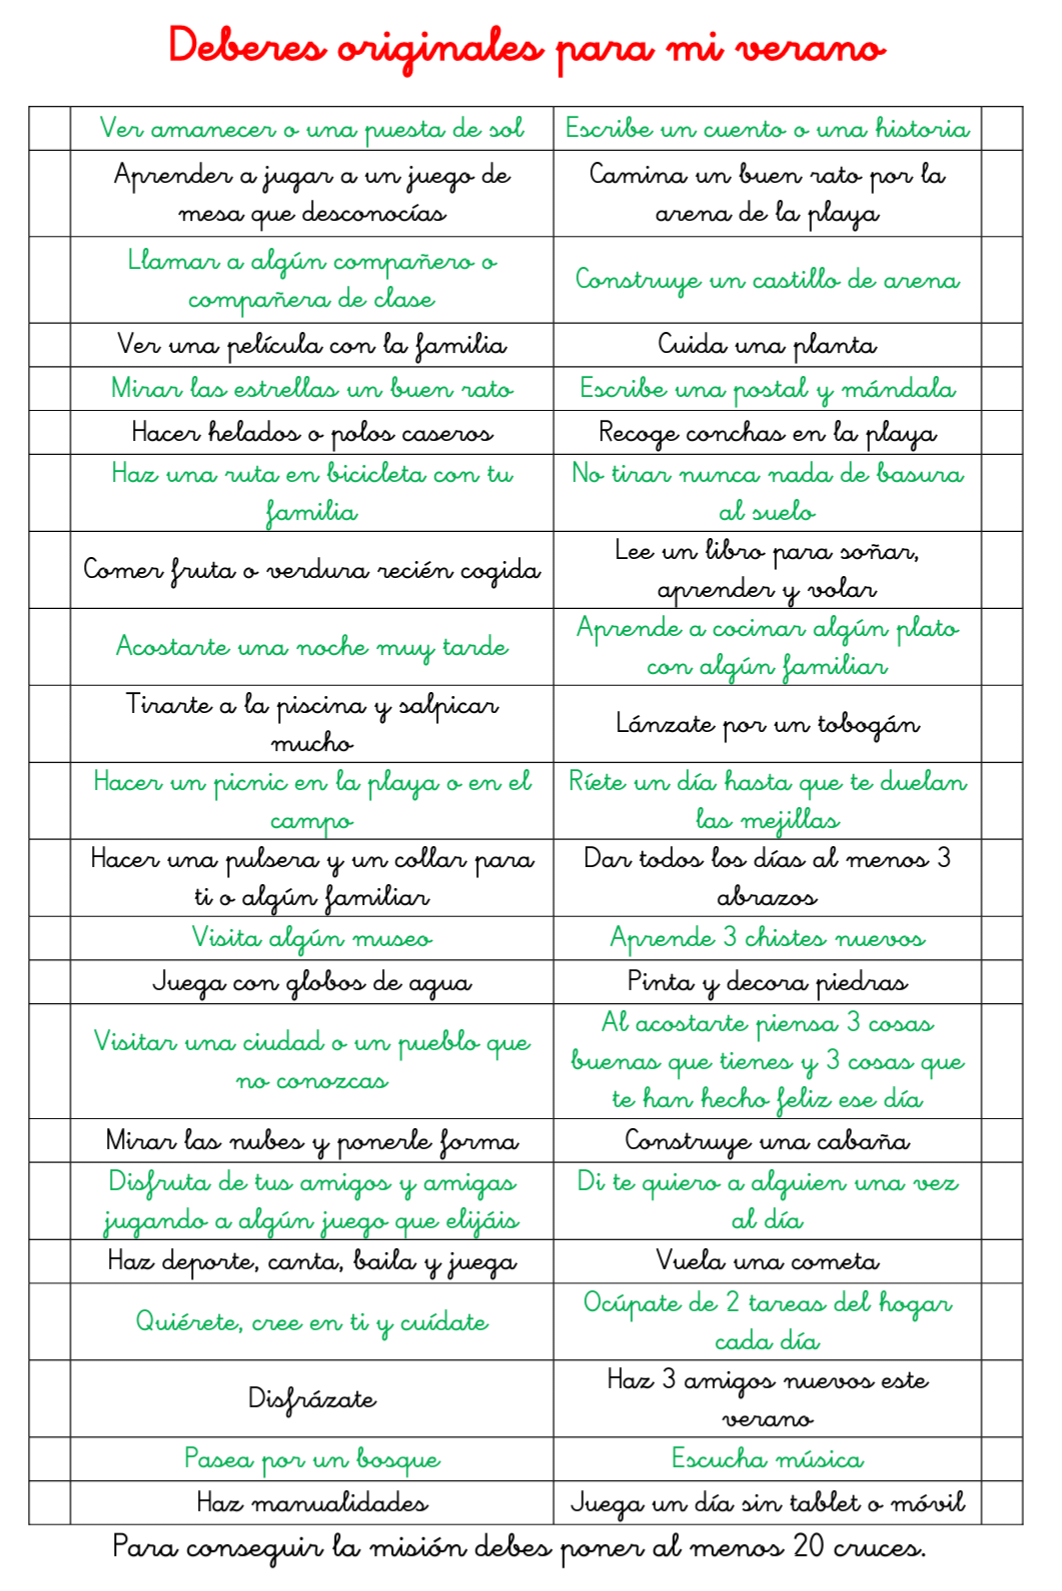 Deberes originales para mi verano
Ver amanecer o una puesta de sol
Escribe un cuento o una historia
Aprender a jugar a un juego de
mesa que desconocías
Camina un buen rato por la
arena de la playa
Llamar a algún compañero o
compañera de clase
Construye un castillo de arena
Ver una película con la familia
Cuida una planta
Mirar las estrellas un buen rato
Escribe una postal y mándala
Hacer helados o polos caseros
Recoge conchas en la playa
Haz una ruta en bicicleta con tu
familia
No tirar nunca nada de basura
al suelo
Comer fruta o verdura recién cogida
Lee un libro para soñar,
aprender y volar
Acostarte una noche muy tarde
Aprende a cocinar algún plato
con algún familiar
Tirarte a la piscina y salpicar
mucho
Lánzate por un tobogán
Hacer un picnic en la playa o en el
campo
Ríete un día hasta que te duelan
las mejillas
Hacer una pulsera y un collar para
ti o algún familiar
Dar todos los días al menos 3
abrazos
Visita algún museo
Aprende 3 chistes nuevos
Juega con globos de agua
Pinta y decora piedras
Visitar una ciudad o un pueblo que
no conozcas
Al acostarte piensa 3 cosas
buenas que tienes y 3 cosas que
te han hecho feliz ese día
Mirar las nubes y ponerle forma
Construye una cabaña
Disfruta de tus amigos y amigas
jugando a algún juego que elijáis
Di te quiero a alguien una vez
al día
Haz deporte, canta, baila y juega
Vuela una cometa
Quiérete, cree en ti y cuídate
Ocúpate de 2 tareas del hogar
cada día
Disfrázate
Haz 3 amigos nuevos este
verano
Pasea por un bosque
Escucha música
Haz manualidades
Juega un día sin tablet o móvil
Para conseguir la misión debes poner al menos 20 cruces.